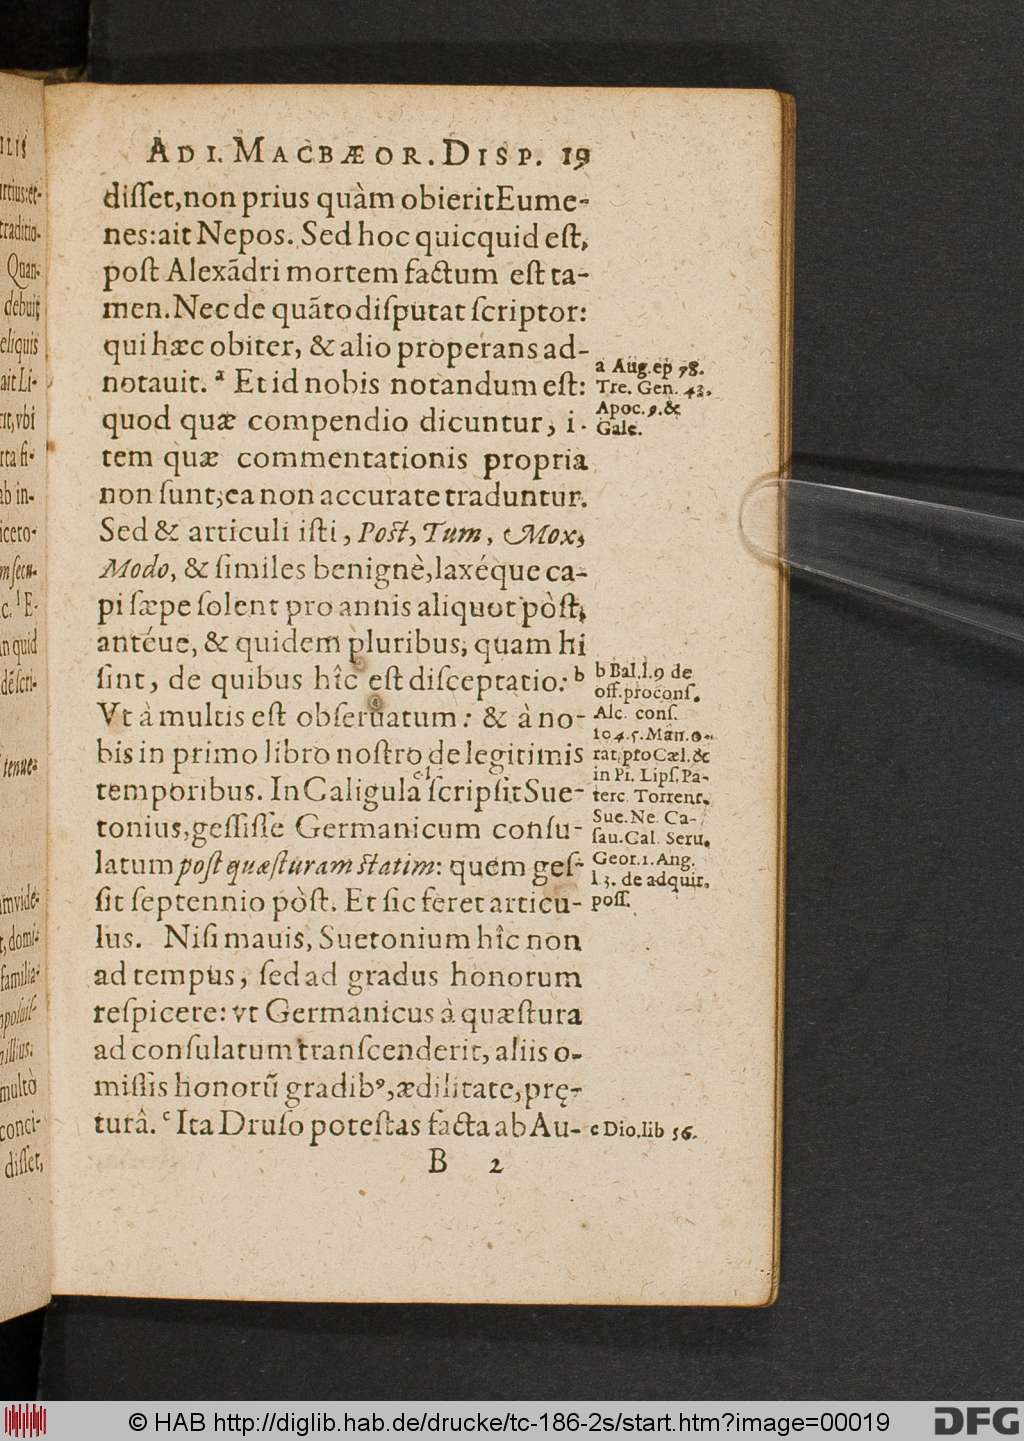 AD I. MACBÆOR. DISP. 19
diſſet, non prius quàm obierit Eume-
nes: ait Nepos. Sed hoc quicquid eſt,
poſt Alexãdri mortem factum eſt ta-
men. Nec de quãto diſputat ſcriptor:
qui hæc obiter, & alio properans ad-
notauit. ª Et id nobis notandum eſt:
quod quæ compendio dicuntur, i-
tem quæ commentationis propria
non ſunt; ea non accurate traduntur.
Sed & articuli iſti, Poſt, Tum, Mox,
Modo, & ſimiles benignè, laxéque ca-
pi ſæpe ſolent pro annis aliquot pòſt,
antéue, & quidem pluribus, quam hi
ſint, de quibus hîc eſt diſceptatio: b
Vt à multis eſt obſeruatum: & à no-
bis in primo libro noſtro de legitimis
temporibus. In Caligula ſcripſit Sue-
tonius, geſſiſſe Germanicum conſu-
latum poſt quæſturam ſtatim: quem geſ-
ſit ſeptennio pòſt. Et ſic feret articu-
lus. Niſi mauis, Suetonium hîc non
ad tempus, ſed ad gradus honorum
reſpicere: vt Germanicus à quæſtura
ad conſulatum tranſcenderit, aliis o-
miſſis honorũ gradibꝰ, ædilitate, prę-
turâ. c Ita Druſo poteſtas facta ab Au-
B 2
a Aug. ep 78.
Tre. Gen. 43.
Apoc. 9. &
Gale.
b Bal. l. 9 de
off. proconſ.
Alc. conſ.
104. 5. Man. o-
rat. pro Cæl. &
in Pi. Lipſ. Pa-
terc. Torrent.
Sue. Ne. Ca-
ſau. Gal. Seru.
Geor. 1. Ang.
l 3. de adquir.
poſſ.
c Dio. lib 56.
ILIS
traditio-
Quan-
debuit
eliquis
ait Li-
rit, vbi
rta fi-
ab in-
icero-
m ſecu-
c. l E-
n quid
dẽ ſcri-
tenue:
t, domi-
familia-
multò
conci-
diſſet,
© HAB http://diglib.hab.de/drucke/tc-186-2s/start.htm?image=00019
DFG